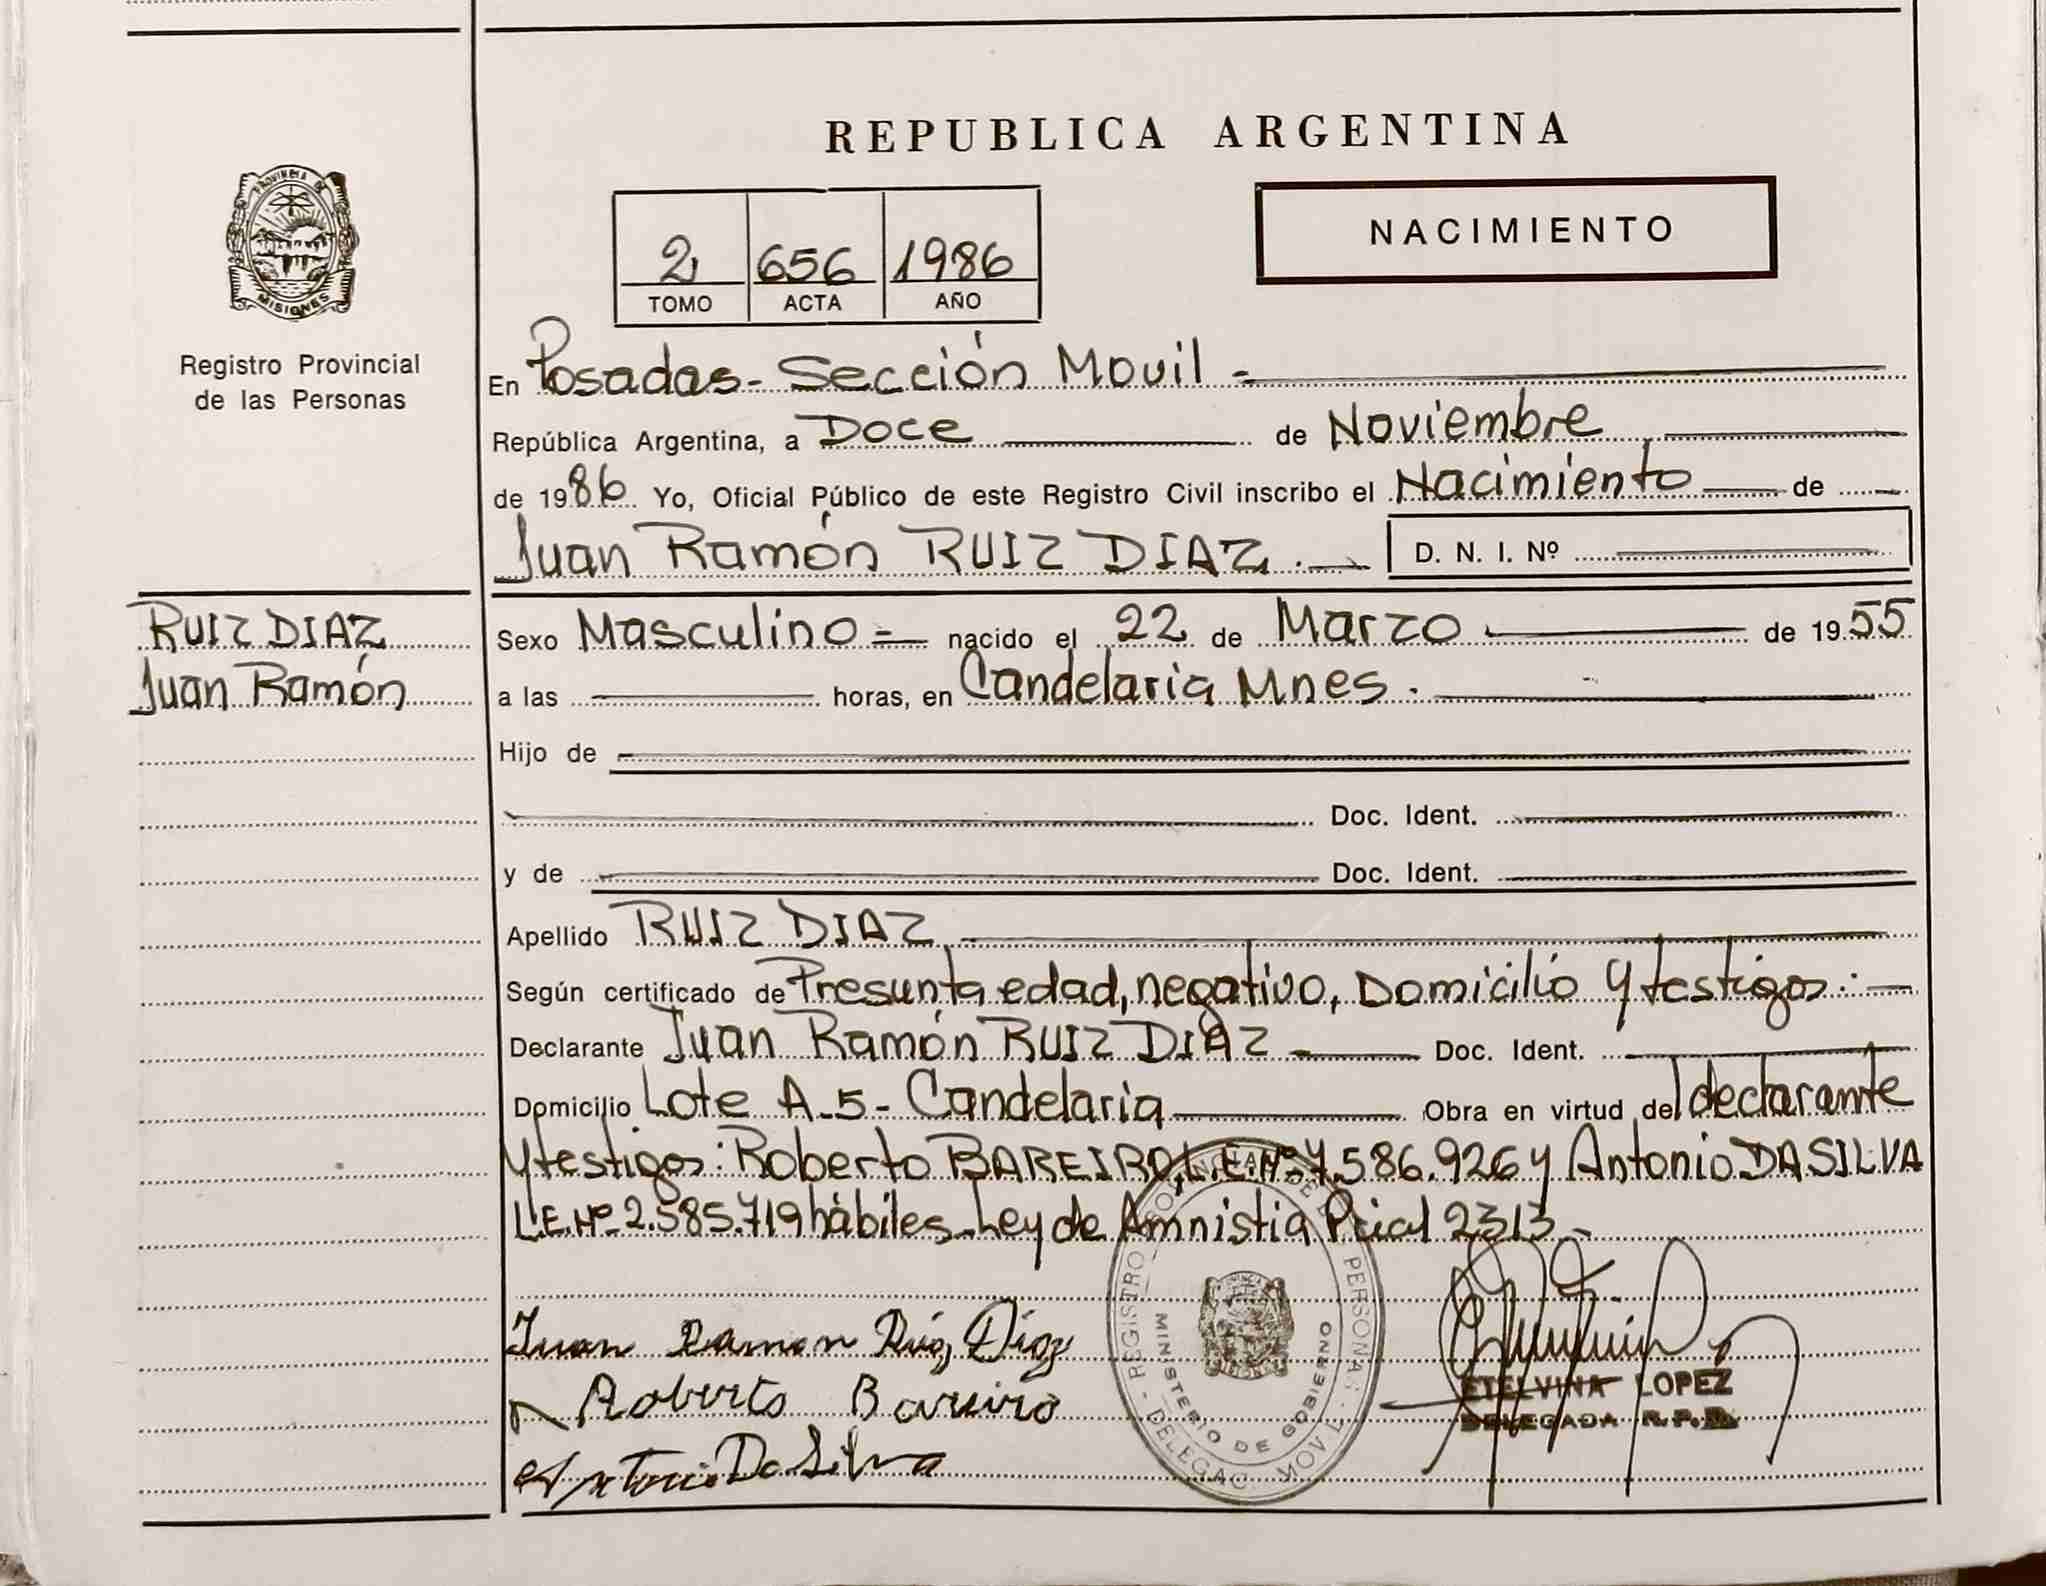 REPUBLICA ARGENTINA
PROVINCIA DE
MISIONES
Registro Provincial
de las Personas
2 656 1986
TOMO ACTA AÑO
NACIMIENTO
En Posadas - Sección Movil -
República Argentina, a Doce de Noviembre
de 1986 Yo, Oficial Público de este Registro Civil inscribo el Nacimiento de
Juan Ramón RUIZ DIAZ. D. N. I. Nº
RUIZ DIAZ
Juan Ramón
Sexo Masculino = nacido el 22 de Marzo de 1955
a las horas, en Candelaria Mnes.
Hijo de
Doc. Ident.
y de Doc. Ident.
Apellido RUIZ DIAZ
Según certificado de Presunta edad, negativo, Domicilio y testigos:
Declarante Juan Ramón RUIZ DIAZ Doc. Ident.
Domicilio Lote A-5- Candelaria Obra en virtud del declarante
y testigos: Roberto BAREIRO, L.E. Nº 7.586.926 y Antonio DA SILVA
L.E. Nº 2.585.719 hábiles - Ley de Amnistia Pcial 2313 -
Juan Ramon Ruiz Diaz
Roberto Bareiro
Antonio Da Silva
REGISTRO PROVINCIAL DE PERSONAS
MINISTERIO DE GOBIERNO
DELEGAC. MOVIL
ETELVINA LOPEZ
DELEGADA R.P.P.